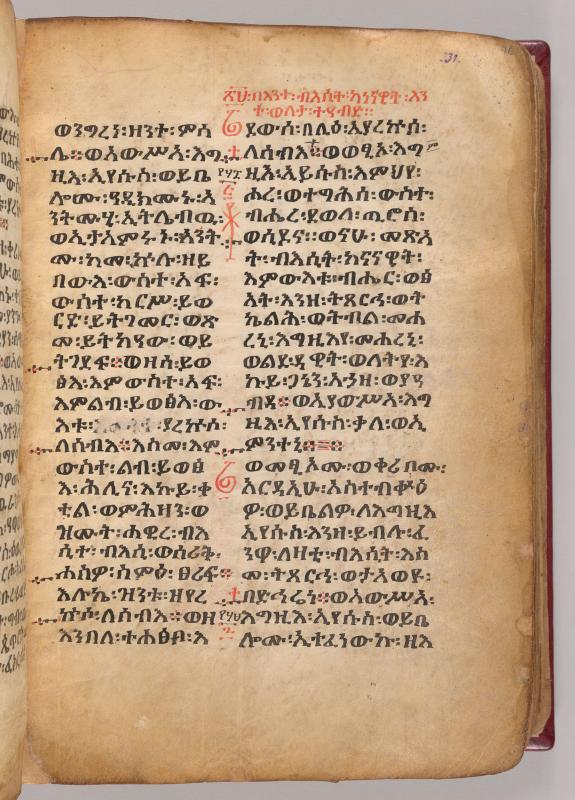 31.
በእንተ፡ብእሲት፡ከነናዊት፡እን
ተ፡ወለታ፡ተዓብድ።
ወንግረነ፡ዘንተ፡ምሳ
ሌ። ወአውሥአ፡እግ
ዚእ፡ኢየሱስ፡ወይቤ
ሎሙ፡ዓዲክሙኑ፡አ
ንትሙሂ፡ኢትሌብዉ፡
ወኢታአምሩኑ፡አንት
ሙ፡ከመ፡ኵሉ፡ዘይ
በውእ፡ውስተ፡አፍ፡
ውስተ፡ከርሥ፡ይወ
ርድ፡ይትገመር፡ወጽ
መ፡ይትከዓው፡ወይ
ትገደፍ። ወዘሰ፡ይወ
ፅእ፡እምውስተ፡አፍ፡
እምልብ፡ይወፅእ፡ው
እቱ፡ ያረኵሶ፡
ለሰብእ። እስመ፡እም
ውስተ፡ልብ፡ይወፅ
እ፡ሕሊና፡እኩይ፡ቀ
ቲል፡ወምሕዛን፡ወ
ዝሙት፡ሐዊረ፡ብእ
ሲተ፡ብእሲ፡ወሰሪቅ፡
ሐስዎ፡ስምዕ፡ፀሪፍ።
እሉኬ፡ዝንቱ፡ዘየረ
ኵሶ፡ለሰብእ። ወዘ
እንበለ፡ተሐፅቦ፡እ
ደውሰ፡በሊዕ፡ኢያረኵሶ፡
ለሰብእ። ወወፂኦ፡እግ
ዚእ፡ኢየሱስ፡እምህየ፡
ሐረ፡ወተግሕሰ፡ውስተ፡
ብሔረ፡ደወለ፡ጢሮስ፡
ወሲዶና። ወናሁ፡መጽአ
ት፡ብእሲት፡ከናናዊት፡
እምውእቱ፡ብሔር፡ወፅ
አት፡እንዘ፡ትጸርኅ፡ወት
ኬልሕ፡ወትብል፡መሐ
ረኒ፡እግዚእየ፡መሐረኒ፡
ወልደ፡ዳዊት፡ወለትየ፡እ
ኩይ፡ጋኔን፡አኀዛ፡ወያዓ
ብዳ። ወኢያውሥአ፡እግ
ዚእ፡ኢየሱስ፡ቃለ፡ወኢ
ምንተኒ።
ወመፂኦሙ፡ወቀሪቦሙ፡
አርዳኢሁ፡አስተብቍዕ
ዎ፡ወይቤልዎ፡ለእግዚእ
ኢየሱስ፡እንዘ፡ይብሉ፡ፈ
ንዋ፡ለዛቲ፡ብእሲት፡እስ
መ፡ትጸርኅ፡ወታላወዩ፡
በድኅሬነ። ወአውሥአ፡
እግዚእ፡ኢየሱስ፡ወይቤ
ሎሙ፡ኢተፈነውኩ፡ዘእ